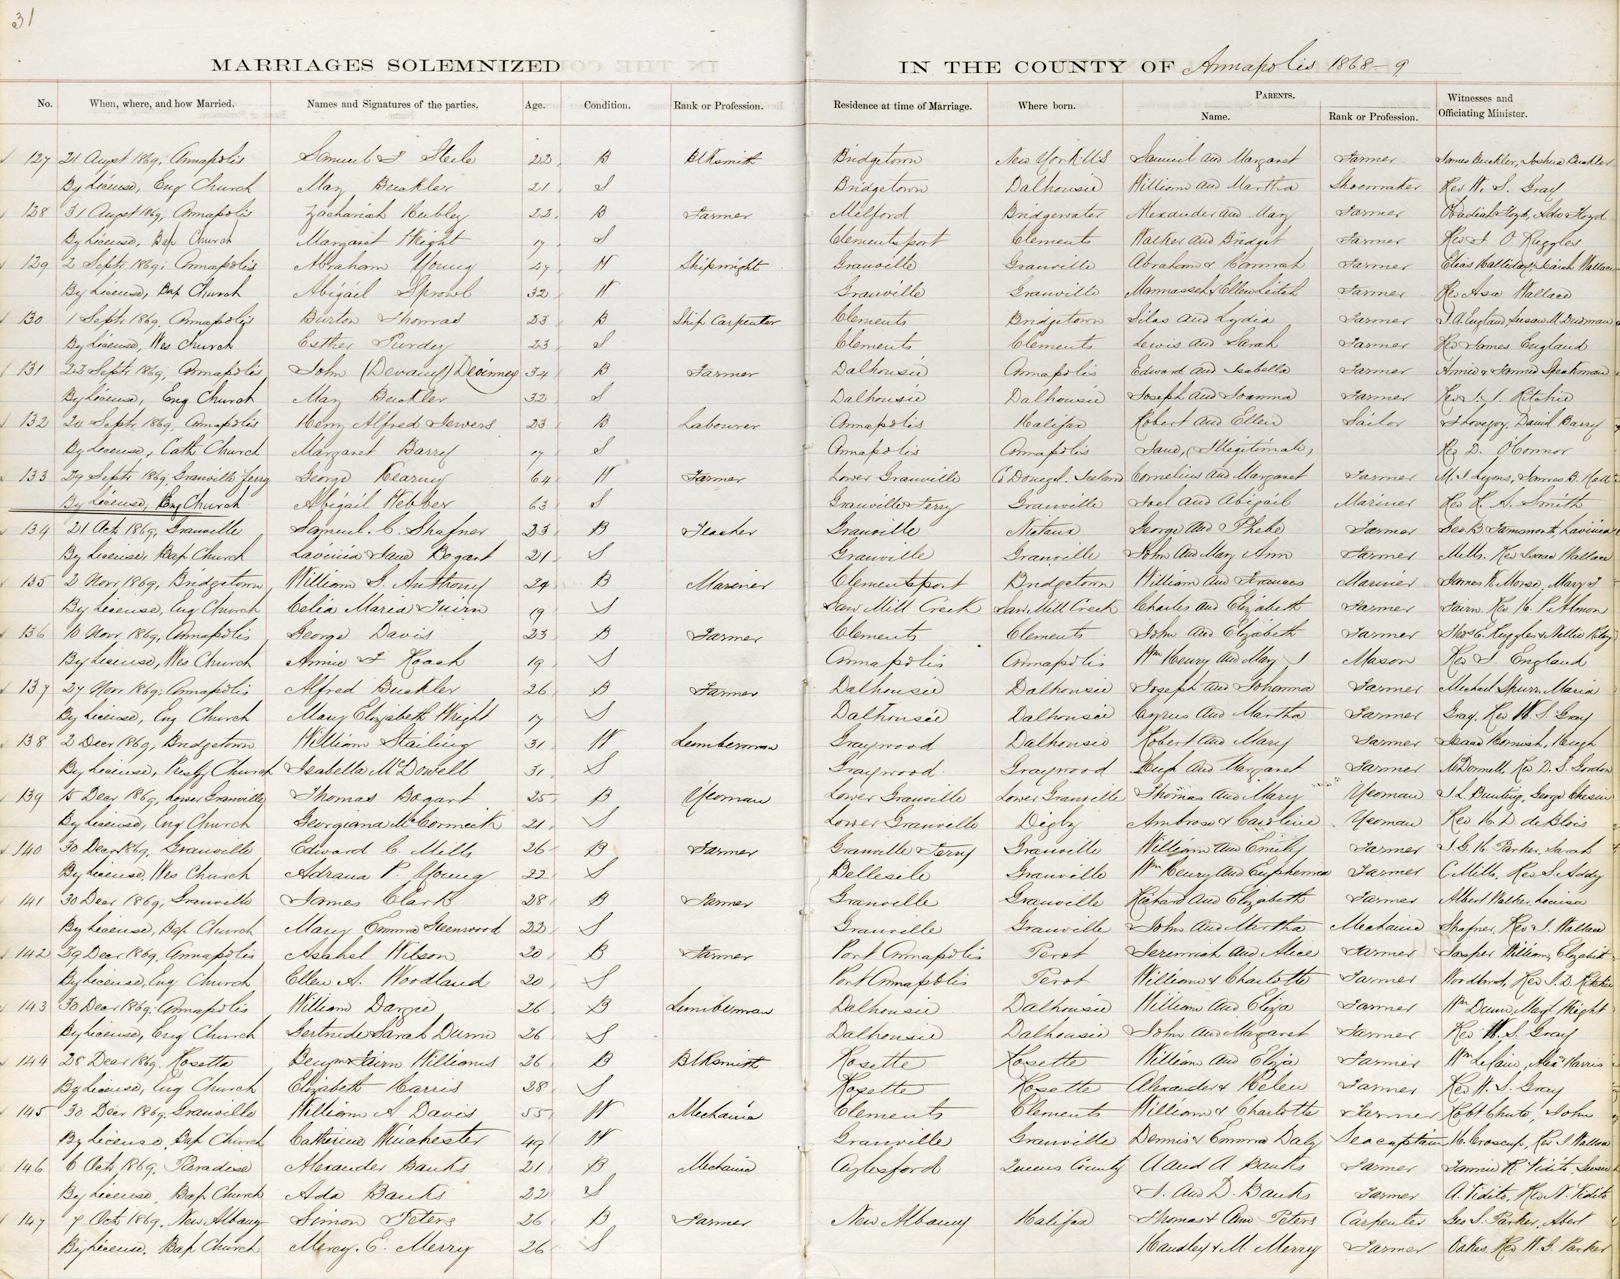 31
MARRIAGES SOLEMNIZED IN THE COUNTY OF Annapolis 1868-9
No. When, where, and how Married. Names and Signatures of the parties. Age. Condition. Rank or Profession. Residence at time of Marriage. Where born. PARENTS. Name. Rank or Profession. Witnesses and Officiating Minister.
127 21 August 1869, Annapolis Samuel Steele 22 B Blksmith Bridgetown New York US Samuel and Margaret Farmer James Buckler, Joshua Buckler
By License, Eng Church May Buckler 21 S Bridgetown Dalhousie William and Martha Shoemaker Rev W. S. Gray
128 31 August 1869, Annapolis Zachariah Heubley 22 B Farmer Milford Bridgewater Alexander and May Farmer Obadiah Floyd, Ada Floyd
By License, Bap Church Margaret Wright 17 S Clementsport Clements Walker and Bridget Farmer Rev J. O Ruggles
129 2 Septr 1869, Annapolis Abraham Young 47 W Shipwright Granville Granville Abraham & Hannah Farmer Elias Halliday & Isaiah Wallace
By License, Bap Church Abigail Sprowl 32 W Granville Granville Mannasseh & Ellen Leitch Farmer Rev Asa Wallace
130 1 Septr 1869, Annapolis Burton Thomas 23 B Ship Carpenter Clements Bridgetown Silas and Lydia Farmer J. A. England, Susan M
By License, Wes Church Esther Purdy 23 S Clements Clements Lewis and Sarah Farmer Rev James England
131 22 Septr 1869, Annapolis John (Devany) Devinney 34 B Farmer Dalhousie Annapolis Edward and Isabella Farmer Annie & Fannie Speakman
By License, Eng Church May Buckler 32 S Dalhousie Dalhousie Joseph and Joanna Farmer Rev J. J. Ritchie
132 20 Septr 1869, Annapolis Henry Alfred Severs 23 B Labourer Annapolis Halifax Robert and Ellen Sailor Lovejoy, David Barry
By License, Cath Church Margaret Barry 17 S Annapolis Annapolis Jane, (Illegitimate) Rev D. O'Connor
133 29 Septr 1869, Granville Ferry George Kearney 64 W Farmer Lower Granville Co Donegal Ireland Cornelius and Margaret Farmer M. J. Lyons, James B. Hall
By License, Eng Church Abigail Webber 63 S Granville Ferry Granville Joel and Abigail Mariner Rev H. A. Smith
134 21 Oct 1869, Granville Samuel C. Shafner 23 B Teacher Granville Nictaux George and Phebe Farmer Geo B, Lavinia
By License, Bap Church Lavinia Jane Bogart 21 S Granville Granville John and May Ann Farmer Mills, Rev Isaiah Wallace
135 2 Novr 1869, Bridgetown William G. Anthony 24 B Mariner Clementsport Bridgetown William and Frances Mariner James R. Morse, Mary J
By License, Eng Church Celia Maria Fairn 19 S Saw Mill Creek Saw Mill Creek Charles and Elizabeth Farmer Fairn Rev H. P. Almon
136 10 Novr 1869, Annapolis George Davis 23 B Farmer Clements Clements John and Elizabeth Farmer Thos E. Ruggles & Nellie Riley
By License, Wes Church Annie F Roach 19 S Annapolis Annapolis Wm Henry and May J Mason Rev J. England
137 27 Novr 1869, Annapolis Alfred Buckler 26 B Farmer Dalhousie Dalhousie Joseph and Johanna Farmer Michael Spurr, Maria
By License, Eng Church Mary Elizabeth Wright 17 S Dalhousie Dalhousie Cyrus and Martha Farmer Gray. Rev W. S. Gray
138 2 Decr 1869, Bridgetown William Stailing 31 W Lumberman Graywood Dalhousie Robert and Mary Farmer Isaac, Hugh
By License, Presby Church Isabella McDowell 31 S Graywood Graywood Hugh and Margaret Farmer McDonnell, Rev D. S. Gordon
139 15 Decr 1869, Lower Granville Thomas Bogart 25 B Yeoman Lower Granville Lower Granville Thomas and Mary Yeoman J. L. Bunting, George
By License, Eng Church Georgiana McCormick 21 S Lower Granville Digby Ambrose & Caroline Yeoman Rev H. D. deBlois
140 30 Decr 1869, Granville Edward C. Mills 26 B Farmer Granville Ferry Granville William and Emily Farmer J. G. H. Parker, Sarah
By License, Wes Church Adrana P. Young 22 S Belleisle Granville Wm Henry and Euphemia Farmer C Mills, Rev S. Addy
141 30 Decr 1869, Granville James Clark 28 B Farmer Granville Granville Richard and Elizabeth Farmer Albert Walker, Louisa
By License, Bap Church Mary Emma Greenwood 22 S Granville Granville John and Martha Mechanic Shafner, Rev I. Wallace
142 29 Decr 1869, Annapolis Asahel Wilson 20 B Farmer Port Annapolis Perot Jeremiah and Alice Farmer Jasper William, Elizabeth
By License, Eng Church Ellen A. Woodland 20 S Port Annapolis Perot William & Charlotte Farmer Woodland, Rev J. J. Ritchie
143 30 Decr 1869, Annapolis William Dargie 26 B Lumberman Dalhousie Dalhousie William and Eliza Farmer Wm Dunn, May Wright
By License, Eng Church Gertrude Sarah Dunn 26 S Dalhousie Dalhousie John and Margaret Farmer Rev W. S. Gray
144 28 Decr 1869, Rosette Benjm Fairn Williams 26 B Blksmith Rosette Rosette William and Eliza Farmer Wm LeCain, Alex Harris
By License, Eng Church Elizabeth Harris 28 S Rosette Rosette Alexander & Helen Farmer Rev W. S. Gray
145 30 Decr 1869, Granville William A. Davis 55 W Mechanic Clements Clements William & Charlotte Farmer Robt Chute, John
By License, Bap Church Catherine Winchester 49 W Granville Granville Dennis & Emma Daly Sea captain H. Croscup, Rev I Wallace
146 6 Oct 1869, Paradise Alexander Banks 21 B Mechanic Aylesford Queens County A and A Banks Farmer Fannie R. Vidito,
By License, Bap Church Ada Banks 22 S J. and D. Banks Farmer A. Vidito, Rev N. Vidito
147 7 Oct 1869, New Albany Simon Peters 26 B Farmer New Albany Halifax Thomas & Ann Peters Carpenter Geo S. Parker, Abert
By License, Bap Church Mercy. E. Merry 26 S Handley & M. Merry Farmer Oakes, Rev W. G. Parker